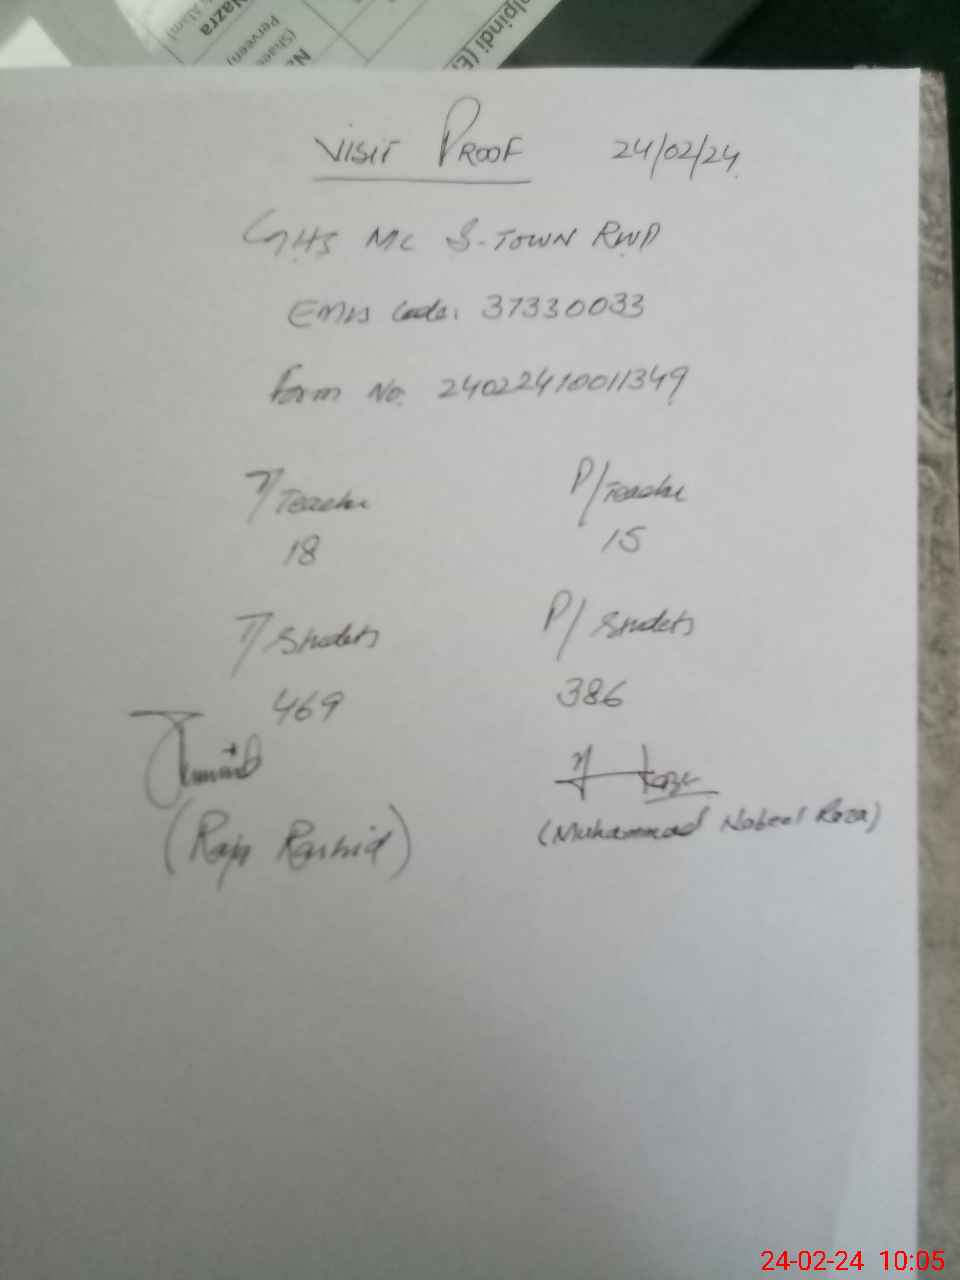 Nazra
(Shaee
Perveen)
Alam)
alpindi (E
VISIT PROOF 24/02/24
GHS MC S-TOWN RWP
EMIS Code: 37330033
Form No. 24022410011349
T/Teacher P/Teacher
18 15
T/Students P/Students
469 386
(Raja Rashid) (Muhammad Nabeel Raza)
24-02-24 10:05